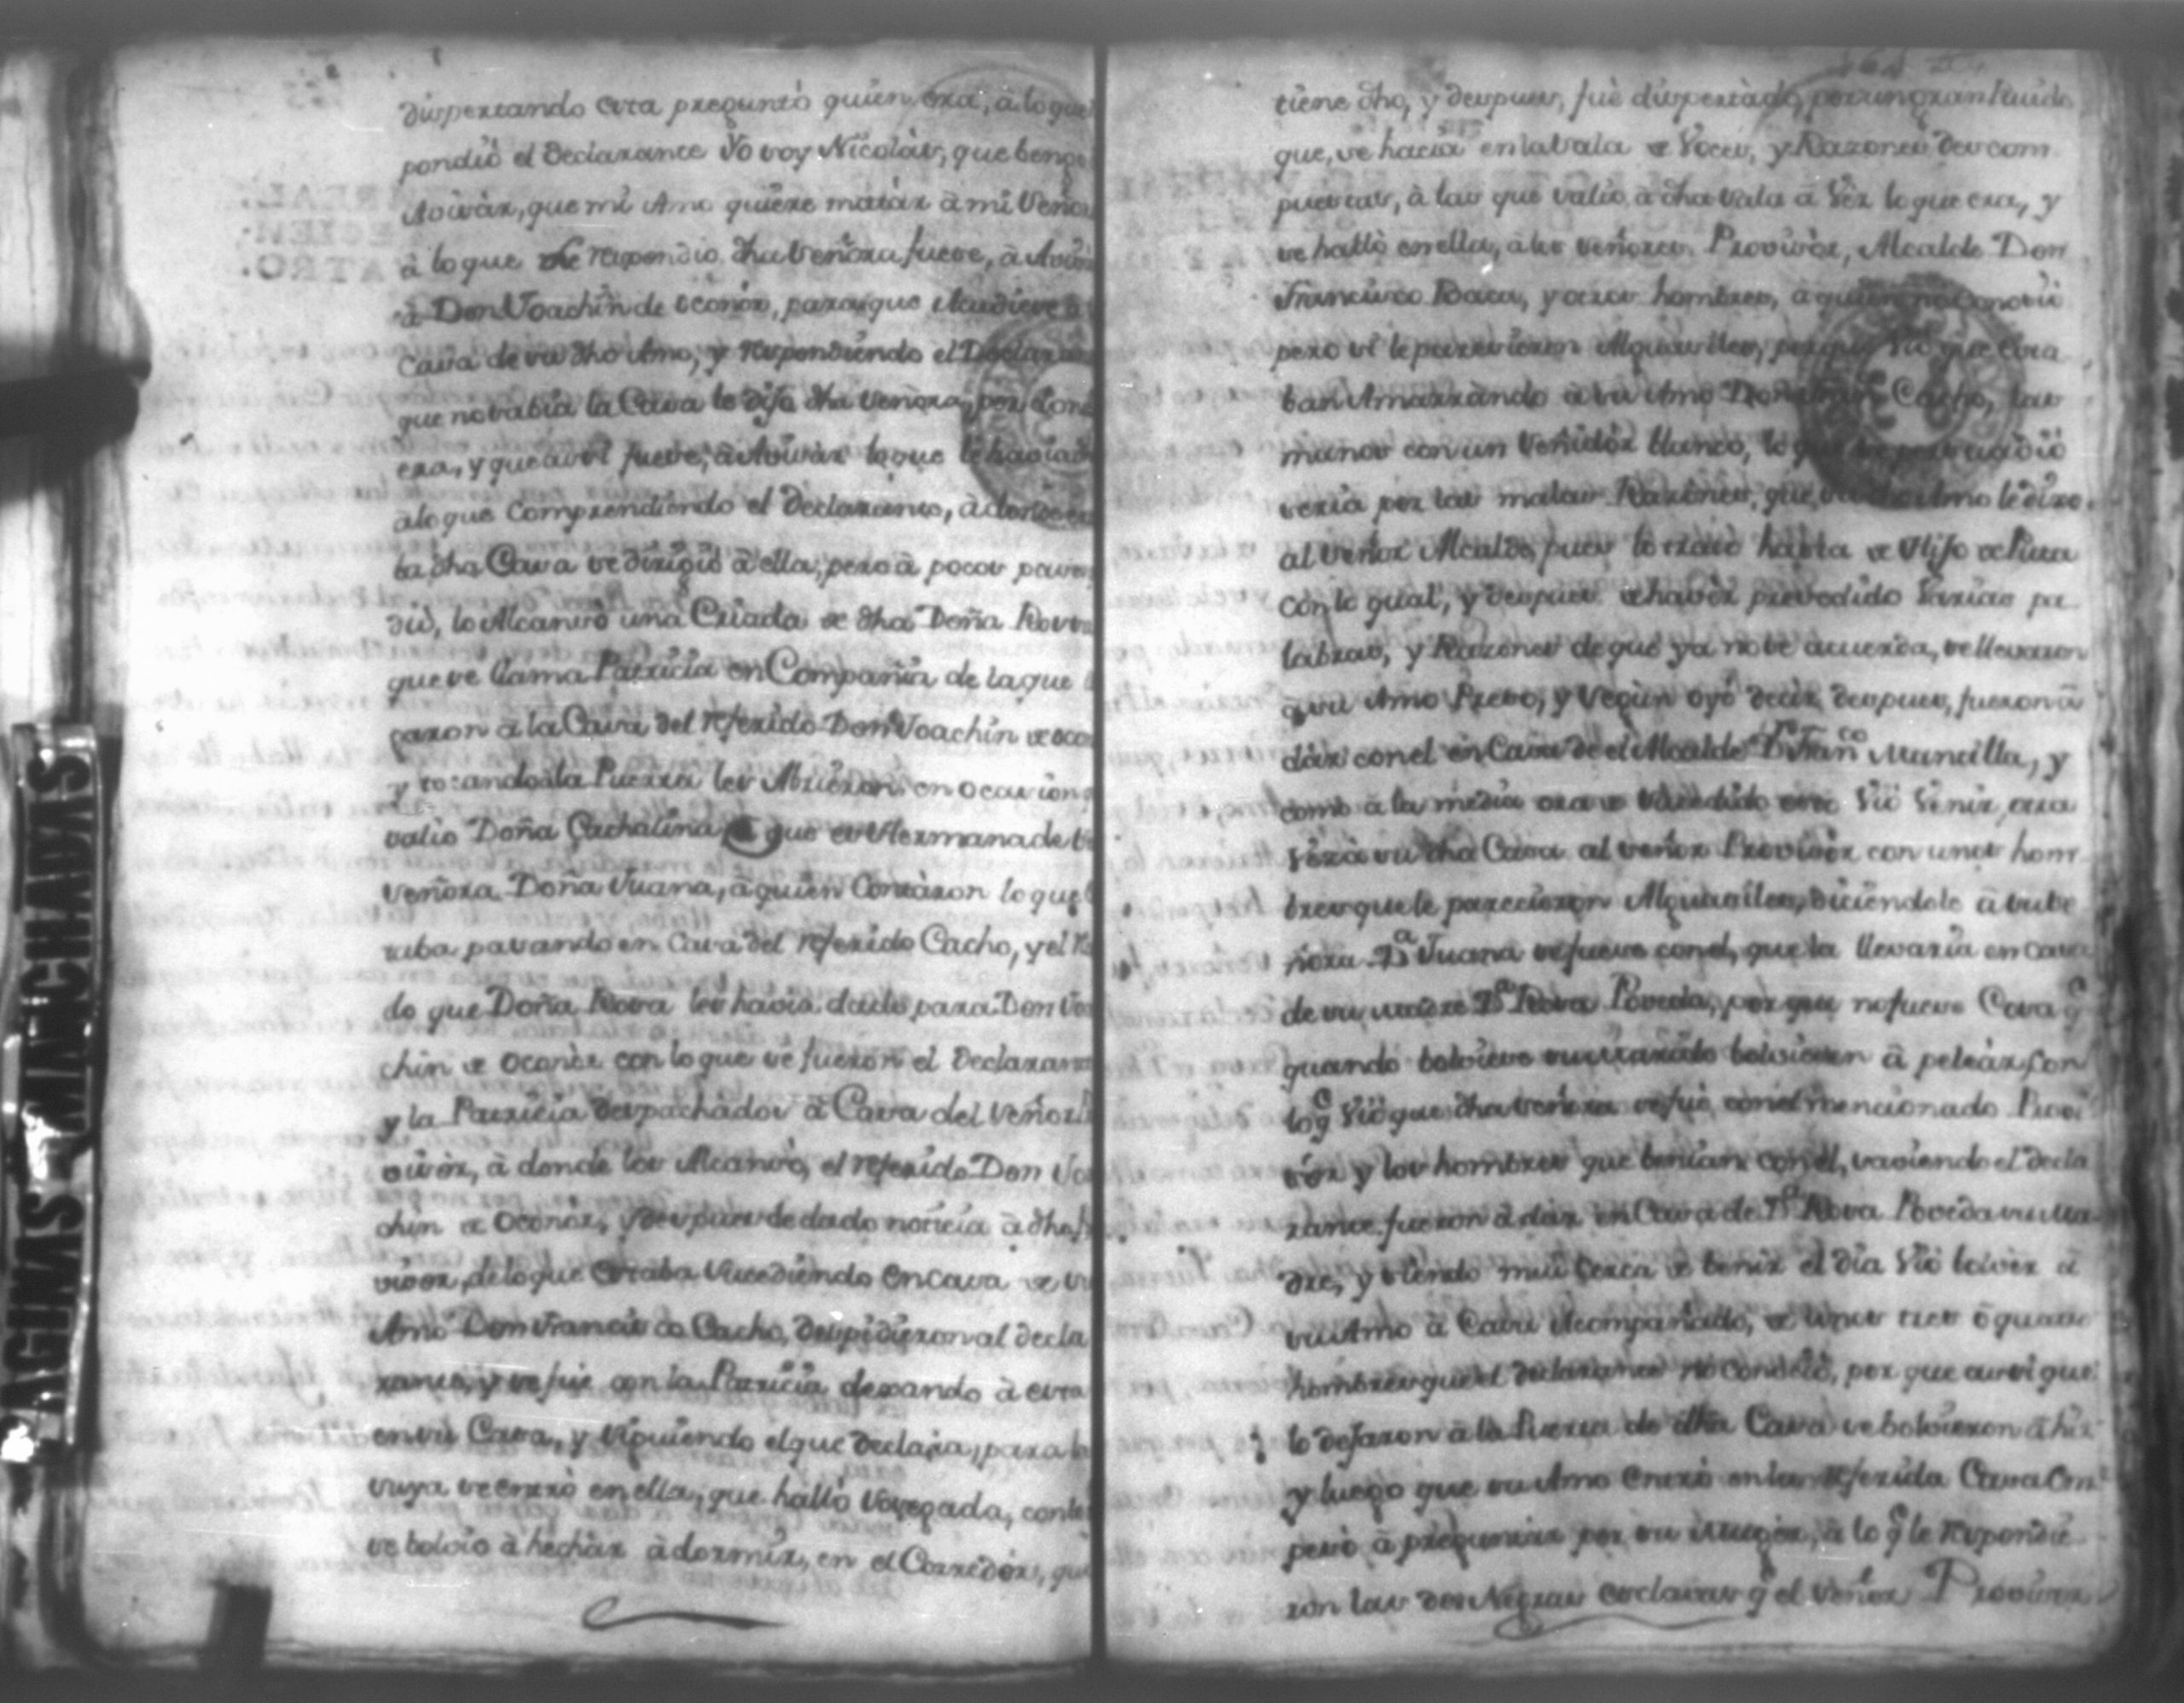 dispertando esta preguntò quien era, à lo que
pondió el Declarante Yo soy Nicolás, que bengo
Avisàr, que mi Amo quiere matàr à mi Señora
à lo que le respondio dha Señora fuese, à Avisàr
à Don Joachin de oconòr, para que Acudiese à
Casa de su dho Amo, y respondiendo el Declarante
que no sabia la Casa le dijo dha Señora, por donde
era, y que asi fuese, à Avisàr lo que le hacia
à lo que Comprendiendo el Declarante, à donde es
ta dha Casa se dirigiò à ella, pero à pocos pasos
diò, lo Alcansò una Criada de dha Doña Rosa
que se llama Patricia en Compañia de la que
garon à la Casa del referido Don Joachin de oco
y tocando la Puerta les Abrieron en ocasion
salio Doña Cathalina que es Hermana de
Señora Doña Juana, à quien Contàron lo que
taba pasando en Casa del referido Cacho, y el
do que Doña Rosa les havia dado para Don Joa
chin de oconòr con lo que se fueron el Declarante
y la Patricia despachados à Casa del Señor
visòr, à donde los Alcansò, el referido Don Joa
chin de oconòr, y despues de dado noticia à dho
visor, de lo que estaba sucediendo en casa de su
Amo Don Francisco Cacho, despidieron al decla
rante, y se fue con la Patricia dexando à esta
en su Casa, y siguiendo el que declara, para la
suya se entrò en ella, que hallò sosegada, con lo
se bolvio à hechàr à dormir, en el Corredòr, que
tiene dho, y despues, fuè dispertado, por un gran Ruido
que, se hacia en la Sala de Voces, y Razones descom
puestas, à las que salio à dha Sala à Vèr lo que era, y
se hallò en ella, à los señores Provisòr, Alcalde Don
Francisco Baca, y otros hombres, à quien no Conociò
pero si le parecieron Alguaciles, porque Viò que esta
ban Amarràndo à su Amo Don Fran Cacho, las
manos con un señidòr blanco, lo que se persuadiò
seria por las malas Razones, que su dho Amo le dixo
al Señor Alcalde, pues lo tratò hasta de Hijo de Puta
con lo qual, y despues de havèr presedido Varias pa
labras, y Razones de que ya no se acuerda, se llevaron
à su Amo Preso, y Segùn oyò decir despues, fueron à
dàr con el en Casa de el Alcalde Dn Franco Mansilla, y
como à la media ora de Susedido esto Viò Venir, otra
Vèz à su dha Casa al señor Provisòr con unos hom
bres que le parecieron Alguasiles, diciéndole à su Se
ñora Da Juana se fuese con el, que la llevaria en casa
de su madre Da Rosa Poveda, por que no fuese Cosa q
quando bolviese su marido bolviesen à peleàr, con
lo q Viò que dha señora se fuè con el mencionado Provi
sòr y los hombres que benian con el, saviendo el decla
rante fueron à dàr en Casa de Da Rosa Poveda su Ma
dre, y siendo mui cerca de benir el dia Viò bolver à
su Amo à Casa Acompañado, de unos tres ò quatro
hombres que el declarante no conociò, por que assi que
lo dejaron à la Puerta de dha Casa se bolvieron à hir
y luego que su Amo entrò en la referida Casa Em
pesò à preguntàr por su Mugèr, à lo q le respondie
ron las dos Negras esclavas q el Señor Provisòr
AGIMS MANCHADAS